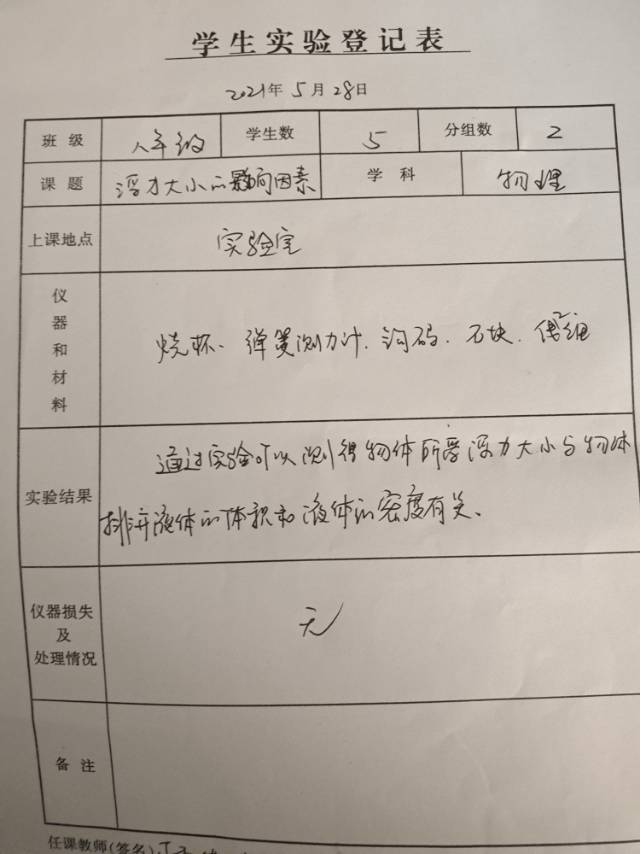 学生实验登记表
2021年5月28日
班级 八年级 学生数 5 分组数 2
课题 浮力大小的影响因素 学科 物理
上课地点 实验室
仪器和材料 烧杯、弹簧测力计、钩码、石块、
实验结果 通过实验可以测得物体所受浮力大小与物体
排开液体的体积和液体的密度有关。
仪器损失及处理情况 无
备注
任课教师(签名)